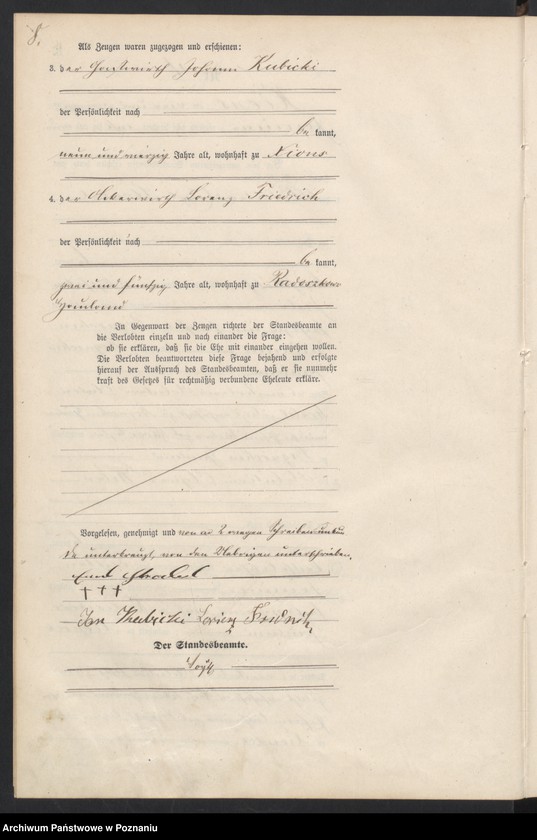 8.
Als Zeugen waren zugezogen und erschienen:
3. der Gastwirth Johann Kubicki
der Persönlichkeit nach
be kannt,
neun und vierzig Jahre alt, wohnhaft zu Xions
4. der Ackerwirth Lorenz Friedrich
der Persönlichkeit nach
be kannt,
zwei und fünfzig Jahre alt, wohnhaft zu
Hauland
In Gegenwart der Zeugen richtete der Standesbeamte an
die Verlobten einzeln und nach einander die Frage:
ob sie erklären, daß sie die Ehe mit einander eingehen wollen.
Die Verlobten beantworteten diese Frage bejahend und erfolgte
hierauf der Ausspruch des Standesbeamten, daß er sie nunmehr
kraft des Gesetzes für rechtmäßig verbundene Eheleute erkläre.
Vorgelesen, genehmigt und von wegen Schreibensunkun
de unterkreuzt, von den Uebrigen unterschrieben.
+++
Jan Kubicki
Der Standesbeamte.
Archiwum Państwowe w Poznaniu